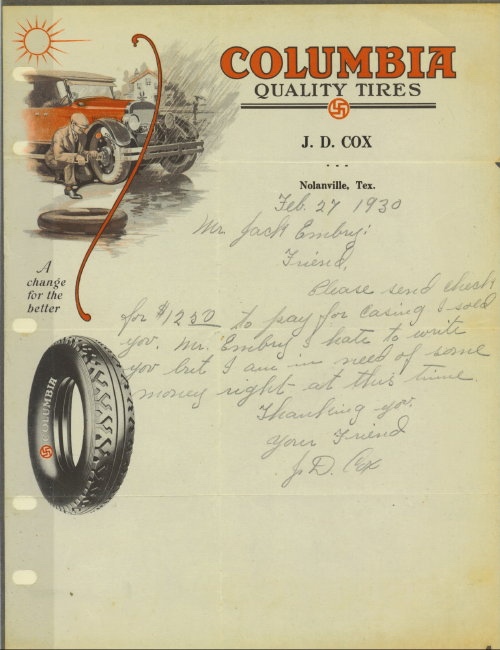 COLUMBIA
QUALITY TIRES
J. D. COX
Nolanville, Tex.
Feb. 27 1930
Mr. Jack Embry:
Friend,
Please send check
for $12 50 to pay for casing I sold
you. Mr. Embry I hate to write
you but I am in need of some
money right at this time
Thanking you.
Your Friend
J. D. Cox
A
change
for the
better
COLUMBIA